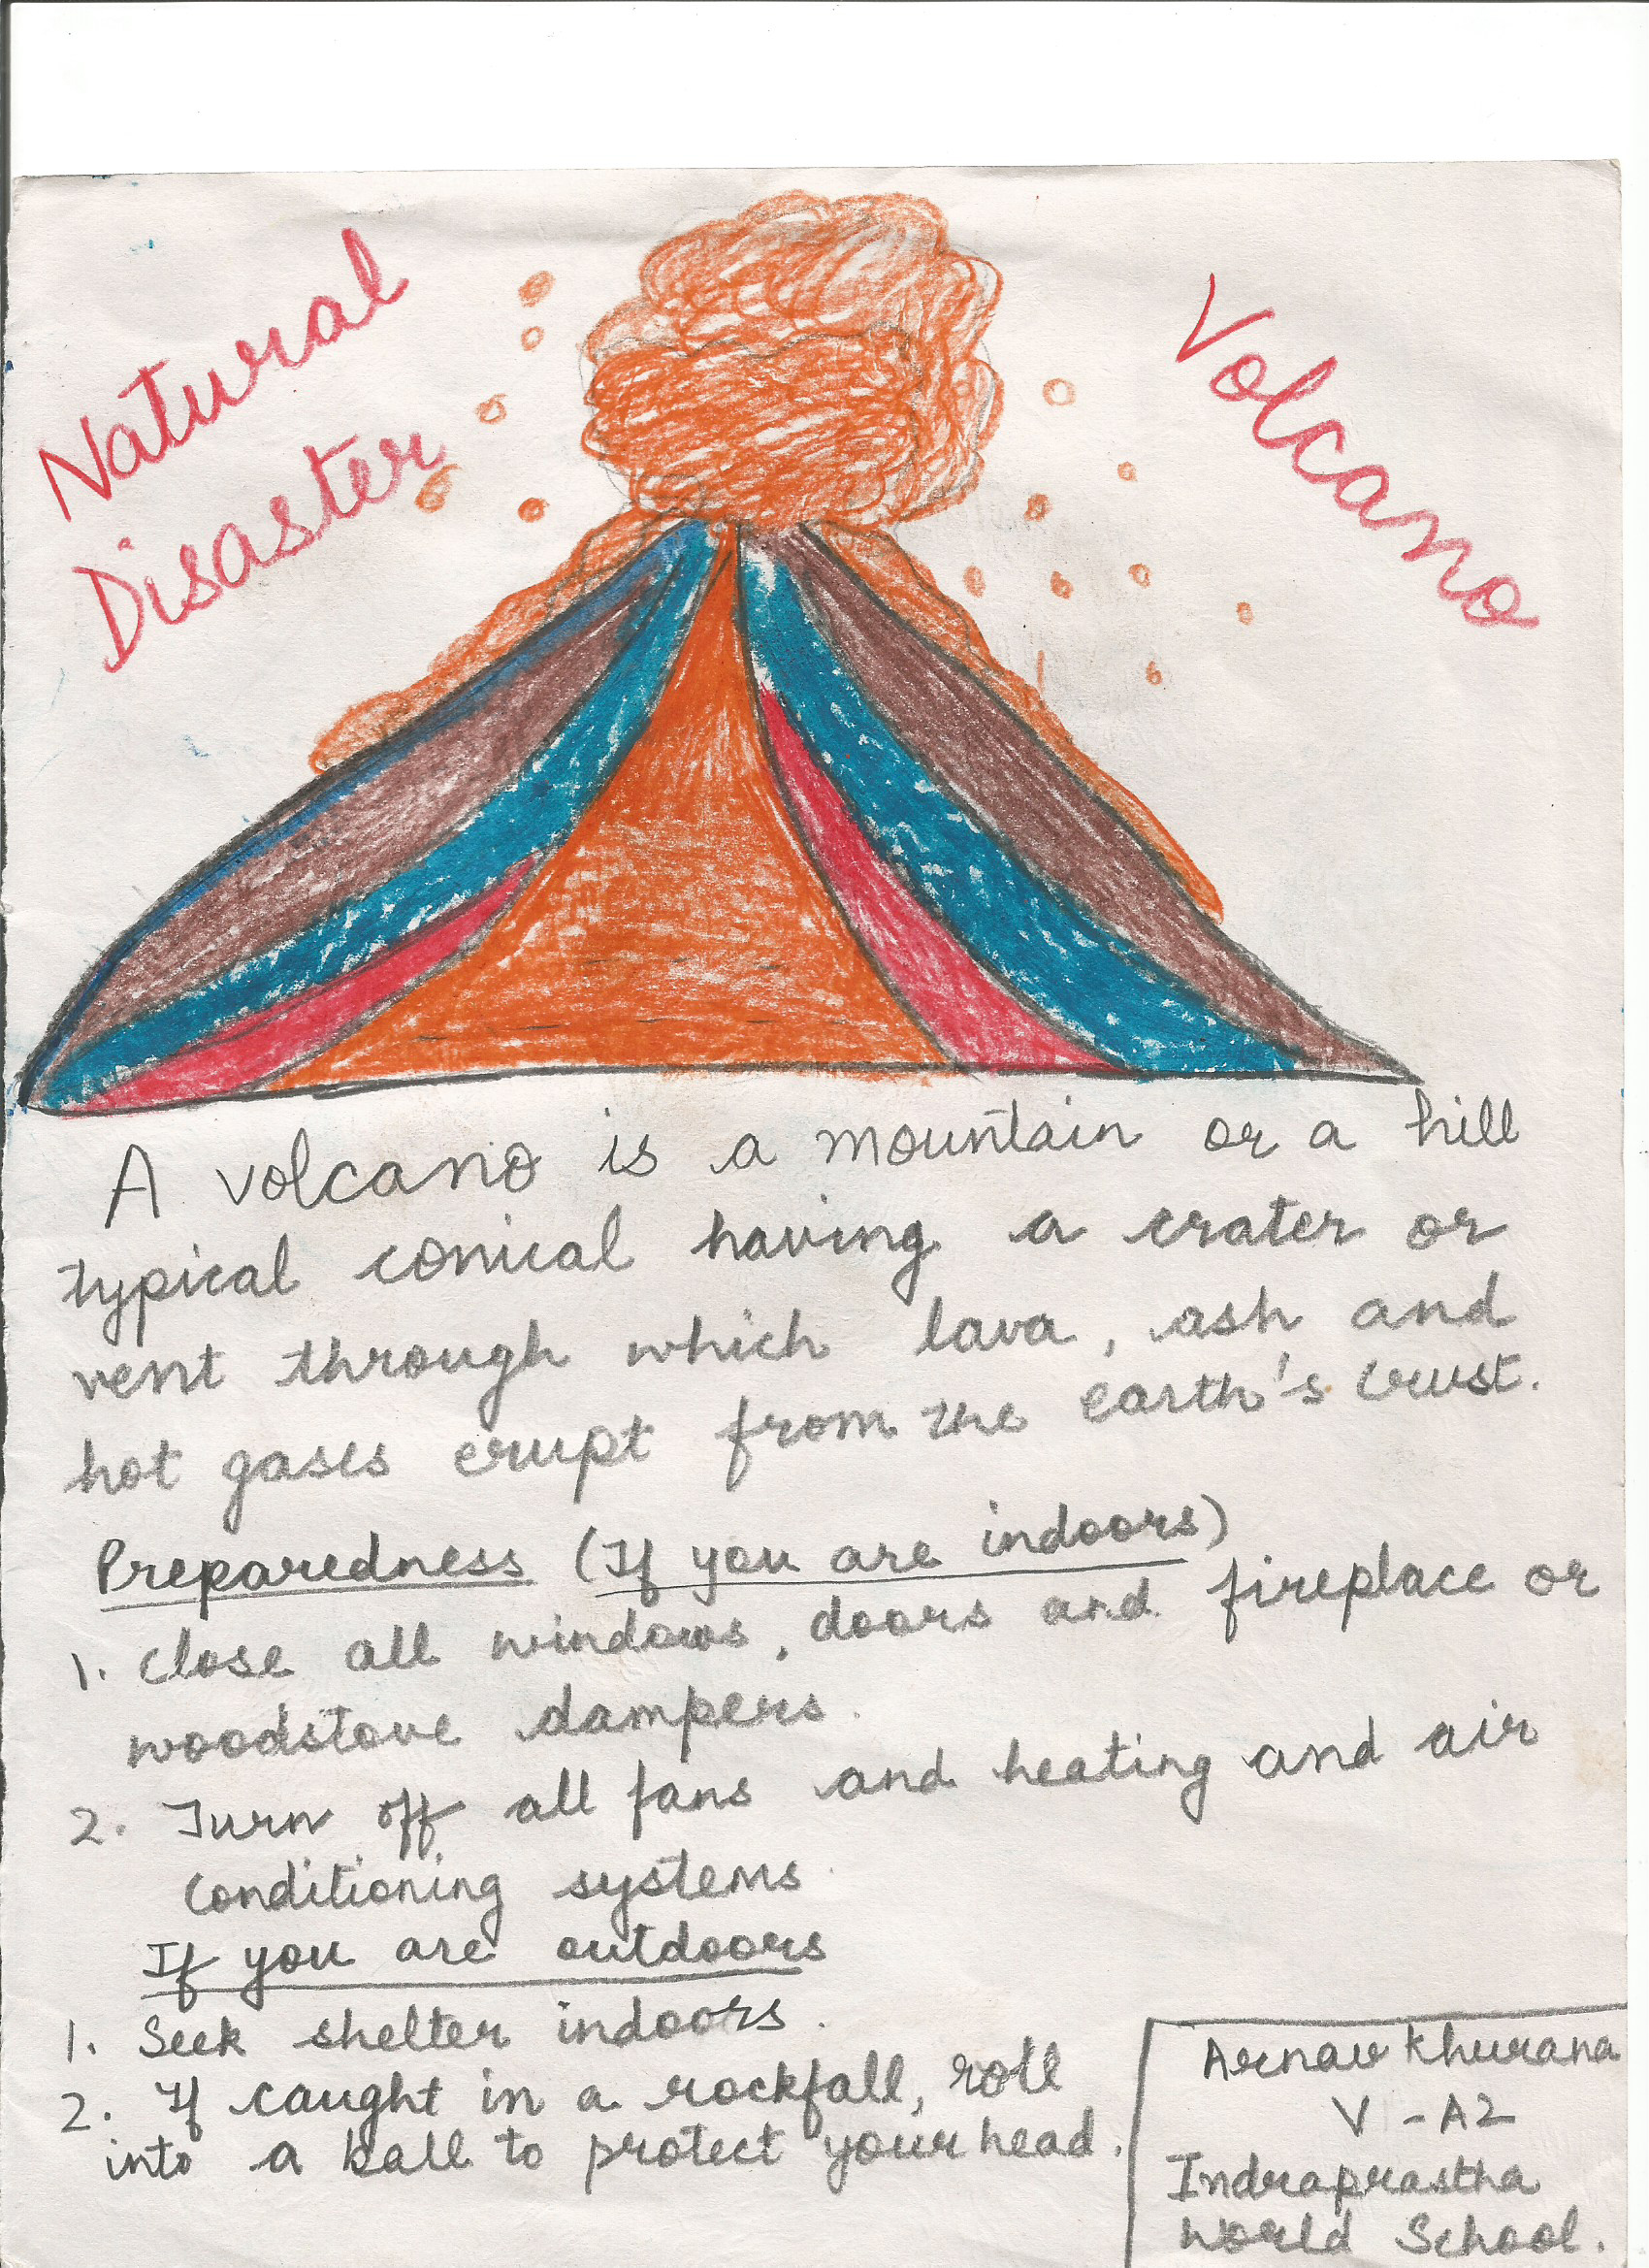 Natural
Disaster
Volcano
A volcano is a mountain or a hill
typical conical having a crater or
vent through which lava, ash and
hot gases erupt from the earth's crust.
Preparedness (If you are indoors)
1. Close all windows, doors and fireplace or
woodstove dampers.
2. Turn off all fans and heating and air
conditioning systems
If you are outdoors
1. Seek shelter indoors.
2. If caught in a rockfall, roll
into a ball to protect your head.
Arnav Khurana
V - A2
Indraprastha
World School.